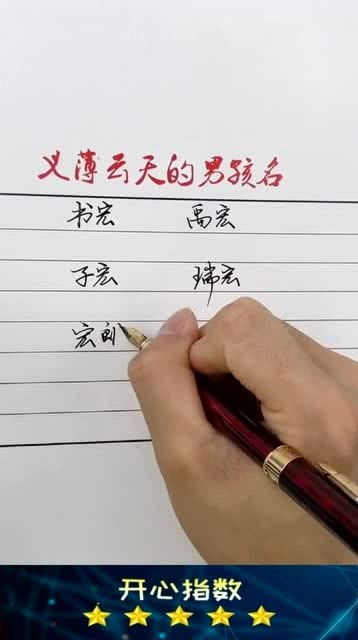 义薄云天的男孩名
书宏 禹宏
子宏 瑞宏
宏
开心指数